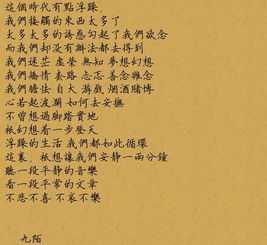 這個時代有點浮躁.
我們接觸的東西太多了
太多太多的誘惑勾起了我們欲念
而我們却没有辦法都去得到
我們迷茫 虛榮 無知 夢想幻想
我們矯情 套路 忐忑 善念雜念
我們膽怯 自大 游戲 烟酒賭博
心若起波瀾 如何去安撫
不曾想過脚踏實地
祇幻想着一步登天
浮躁的生活 我們都如此循環
這裏. 祇想讓我們安静一兩分鐘
聽一段平静的音樂
看一段平常的文章
不悲不喜 不哀不樂
九陌